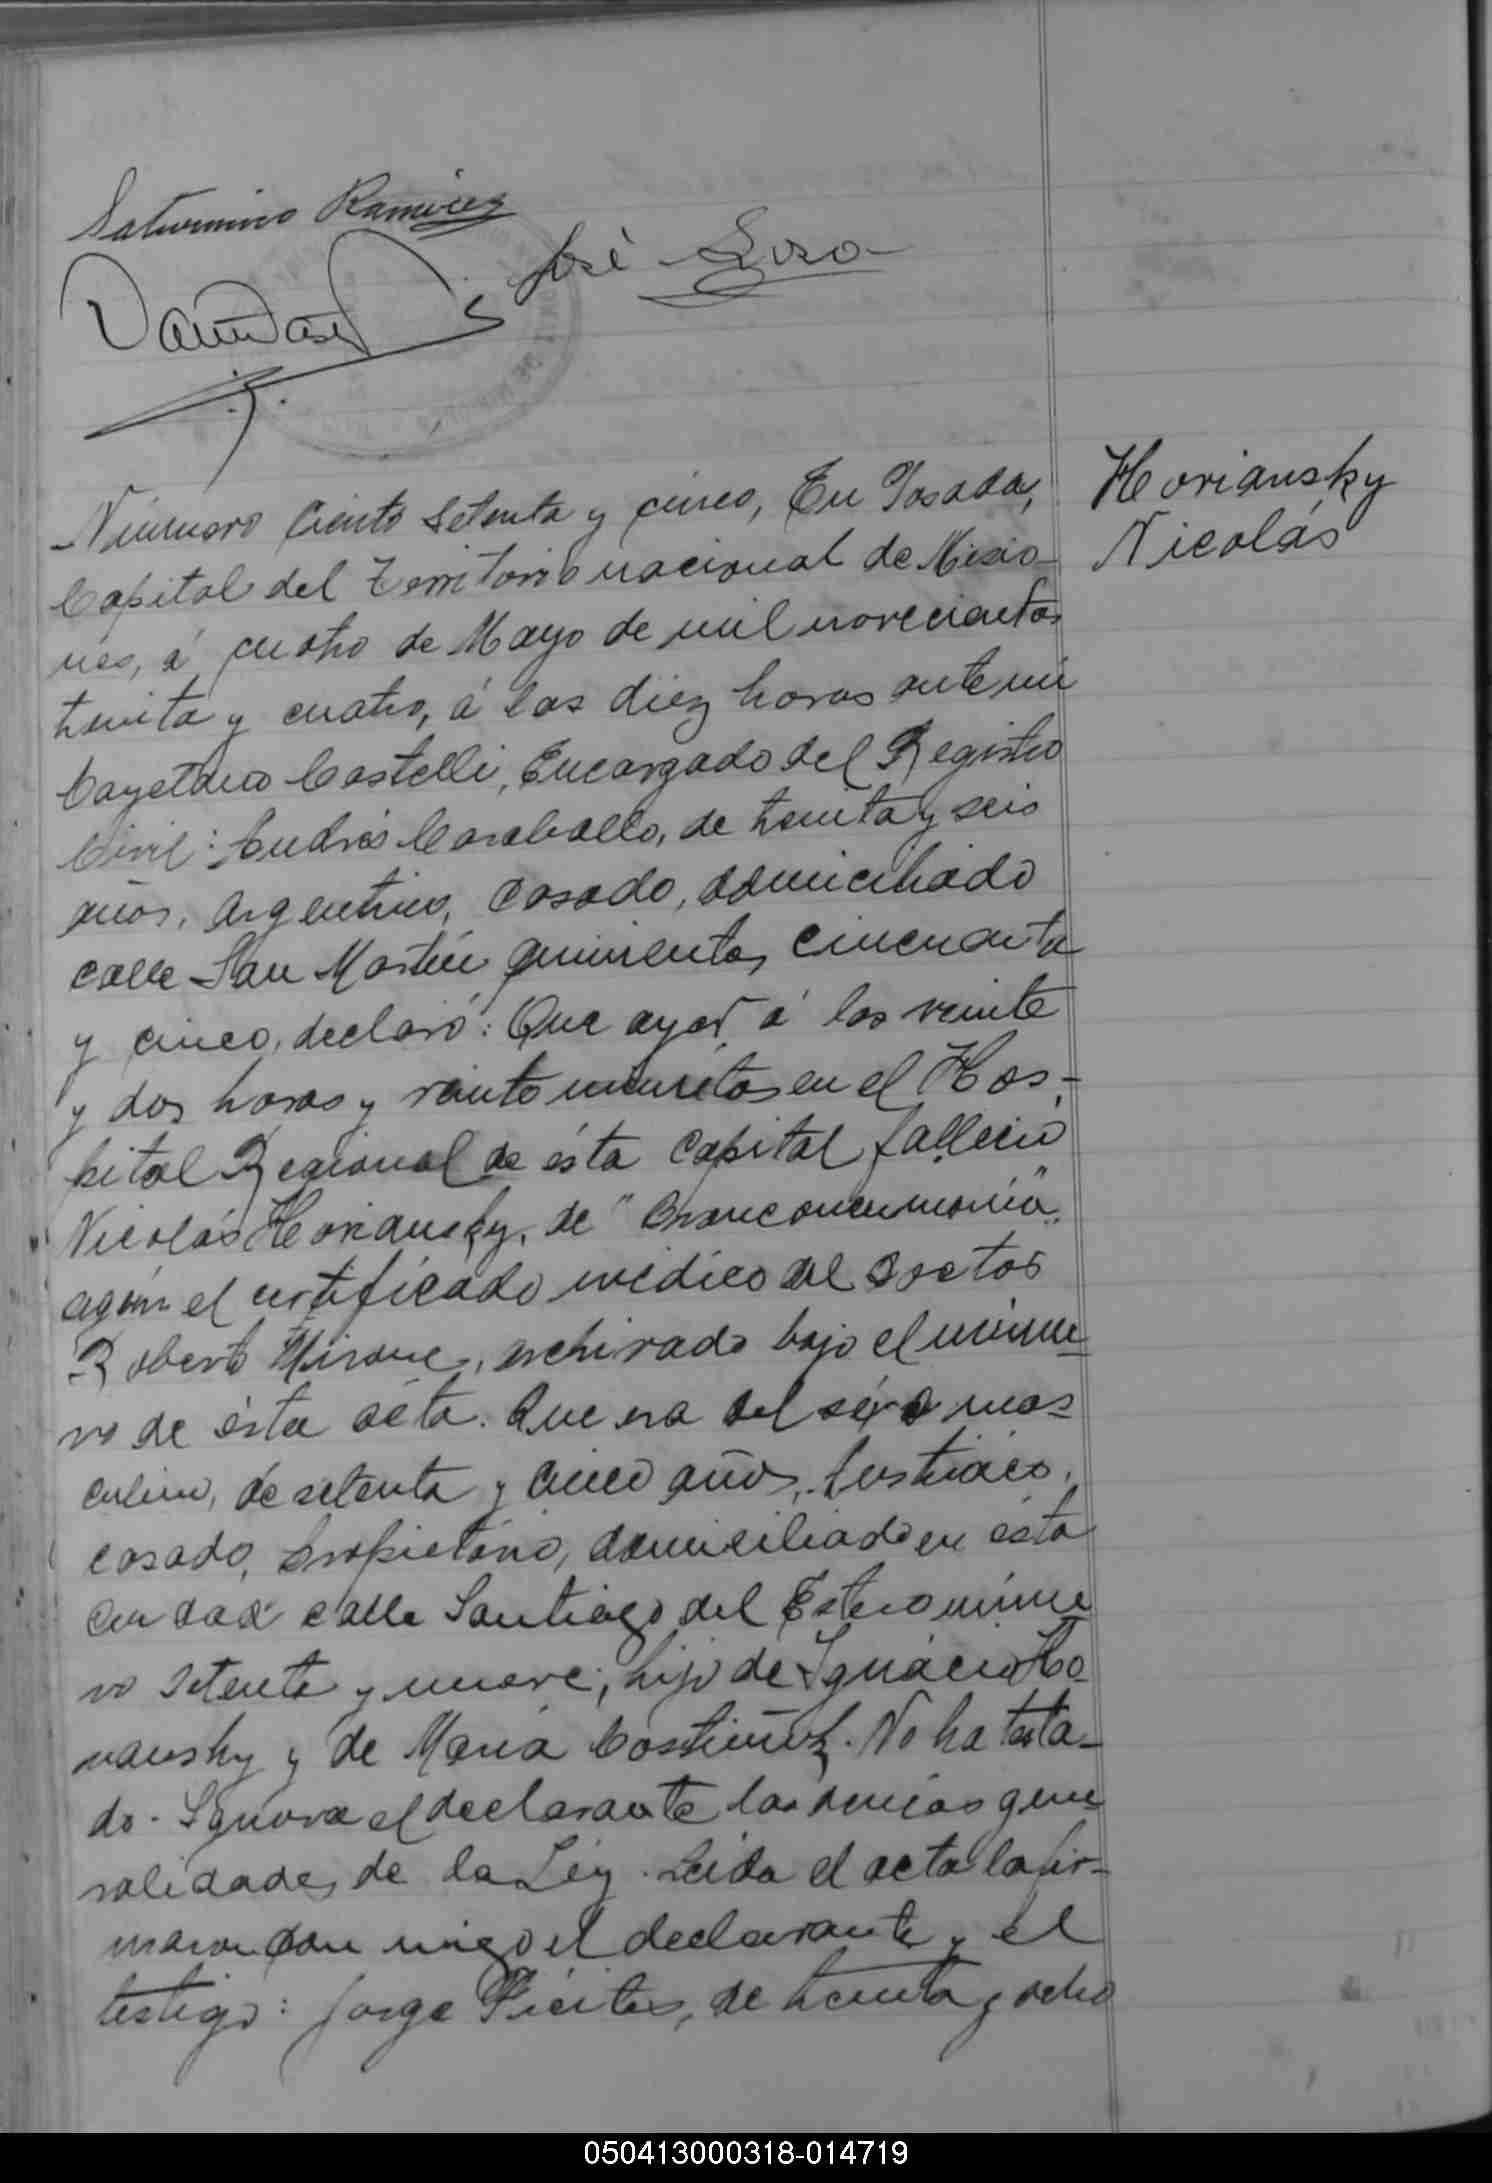 Saturnino Ramirez
José
Horiansky
Nicolás
Número Ciento setenta y cinco, En Posadas,
Capital del Territorio nacional de Misio-
nes, á cuatro de Mayo de mil novecientos
treinta y cuatro, á las diez horas ante mí
Cayetano Castelli, Encargado del Registro
Civil: Andrés Caraballo, de treinta y seis
años, argentino, casado, domiciliado
calle San Martin quinientos cincuenta
y cinco, declaró: Que ayer, á las veinte
y dos horas y veinte minutos en el Hos-
pital Regional de ésta Capital falleció
Nicolás Horiansky, de "Bronconeumonia"
según el certificado médico del doctor
Roberto archivado bajo el núme-
ro de ésta acta. Que era del séxo mas-
culino, de setenta y cinco años, Austriaco,
casado, propietario, domiciliado en ésta
Ciudad calle Santiago del Estero núme
ro setenta y nueve; hijo de Ignacio Ho-
riansky y de Maria No ha testa-
do. Ignora el declarante las demás gene
ralidades de la Léy. Leida el acta la fir-
maron conmigo el declarante y el
testigo: Jorge de treinta y ocho
050413000318-014719